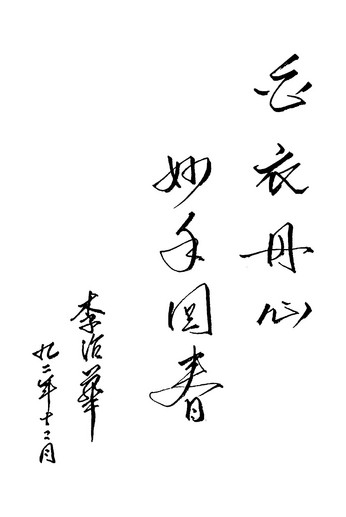 白衣丹心
妙手回春
李治华
九二年十二月